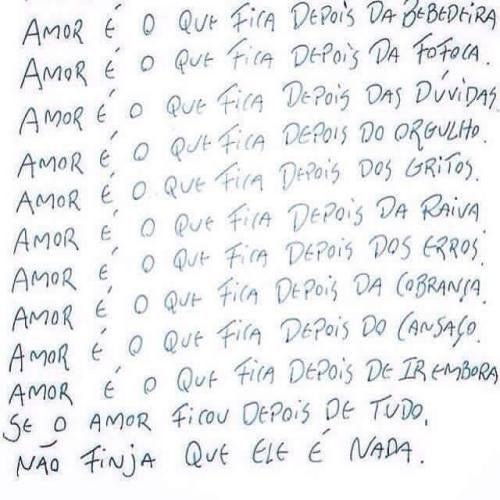 AMOR É O QUE FICA DEPOIS DA BEBEDEIRA
AMOR É O QUE FICA DEPOIS DA FOFOCA.
AMOR É O QUE FICA DEPOIS DAS DÚVIDAS.
AMOR É O QUE FICA DEPOIS DO ORGULHO.
AMOR É O QUE FICA DEPOIS DOS GRITOS.
AMOR É O QUE FICA DEPOIS DA RAIVA
AMOR É O QUE FICA DEPOIS DOS ERROS.
AMOR É O QUE FICA DEPOIS DA COBRANÇA.
AMOR É O QUE FICA DEPOIS DO CANSAÇO.
AMOR É O QUE FICA DEPOIS DE IR EMBORA
SE O AMOR FICOU DEPOIS DE TUDO,
NÃO FINJA QUE ELE É NADA.